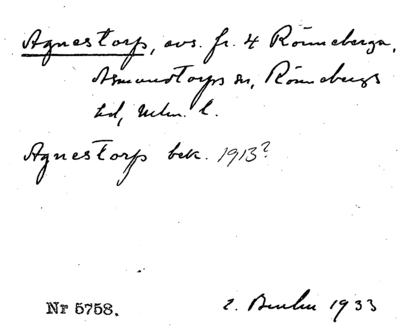 Agnestorp, avs. fr. 4 Rönneberga,
Asmundtorps sn, Rönnebergs
hd, Malm. l.
Agnestorp bek. 1913?
Nr 5758. 1933